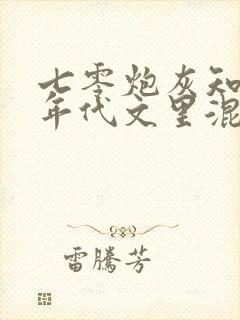 七零炮灰知
年代文里混
雷騰芳